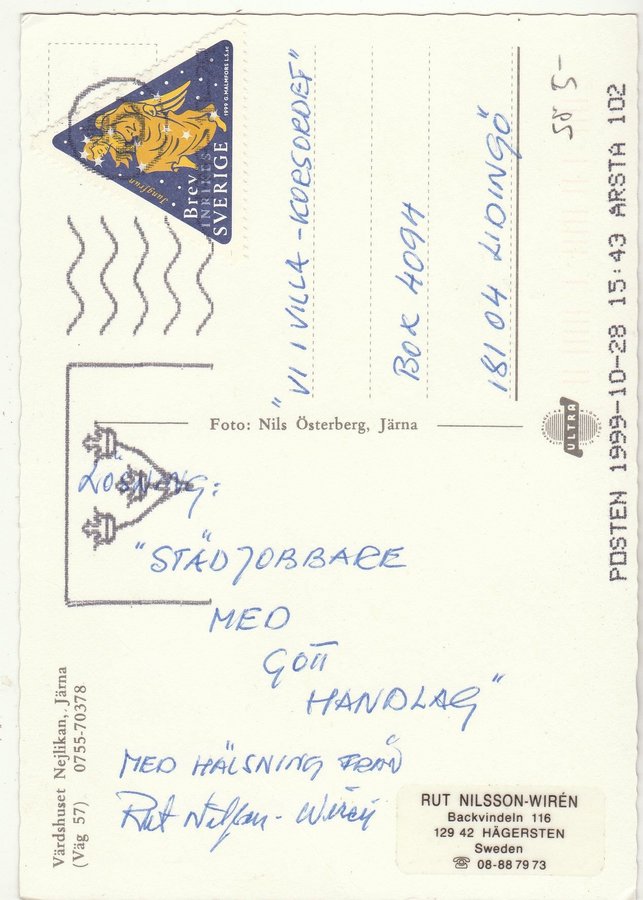 LÖSNING:
"STÄDJOBBARE
MED
GOTT
HANDLAG"
MED HÄLSNING FRÅN
Rut Nilsson-Wirén
RUT NILSSON-WIRÉN
Backvindeln 116
129 42 HÄGERSTEN
Sweden
☏ 08-88 79 73
Värdshuset Nejlikan, Järna
(Väg 57) 0755-70378
Foto: Nils Österberg, Järna
ULTRA
"VI I VILLA-KORSORDET"
BOX 4094
181 04 LIDINGÖ
Jungfrun
Brev
INRIKES
SVERIGE
1999 G. MALMFORS L.S. sc
POSTEN 1999-10-28 15:43 ÅRSTA 102
5:-